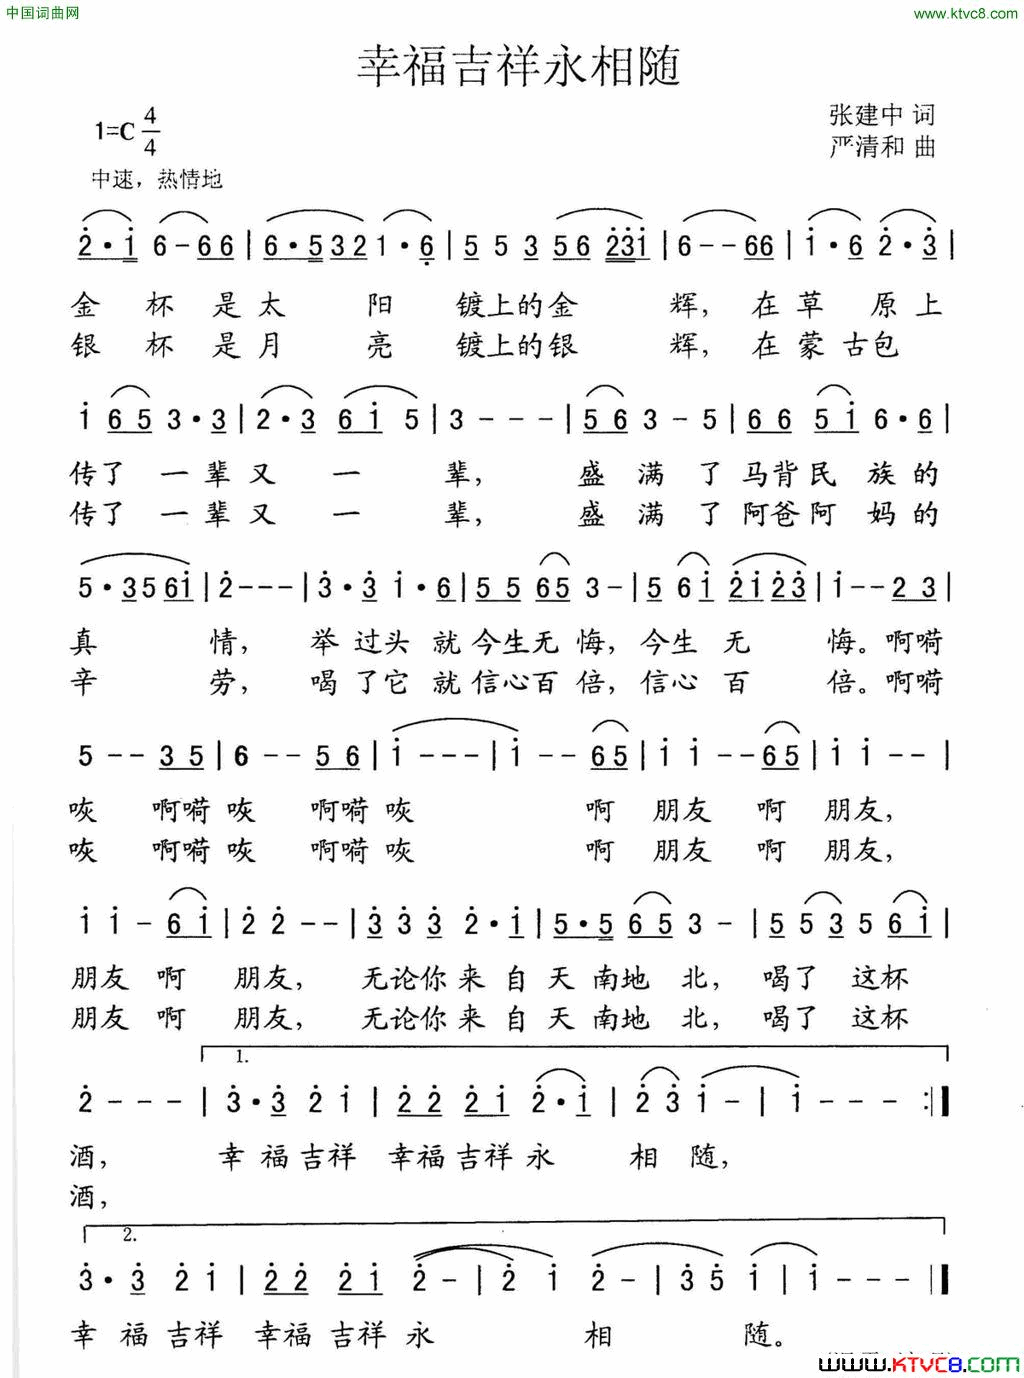 中国词曲网
www.ktvc8.com
幸福吉祥永相随
1=C 4/4
张建中 词
严清和 曲
中速，热情地
2·i 6-66|6·532 1·6|5 5 3 56 23i|6--66|i·6 2·3|
金 杯 是太 阳 镀上的金 辉，在草 原上
银 杯 是月 亮 镀上的银 辉，在蒙古包
i 65 3·3|2·3 6i 5|3---|56 3-5|66 5i 6·6|
传了 一辈又 一 辈， 盛 满 了马背民 族的
传了 一辈又 一 辈， 盛 满 了阿爸阿 妈的
5·35 6i|2---|3·3 i·6|55 65 3-|5 6i 2i23|i--23|
真 情， 举过头就今生无悔，今生 无 悔。啊嗬
辛 劳， 喝了它就信心百倍，信心百 倍。啊嗬
5--35|6--56|i---|i--65|i i--65|i i--|
咴 啊嗬咴 啊嗬咴 啊 朋友 啊 朋友，
咴 啊嗬咴 啊嗬咴 啊 朋友 啊 朋友，
i i-6i|2 2--|33 3 2·i|5·5 65 3-|55 35 6i|
朋友 啊 朋友， 无论你来自天南地 北，喝了 这杯
朋友 啊 朋友， 无论你来自天南地 北，喝了 这杯
1.
2---|3·3 2 i|22 2i 2·i|2 3 i-|i---:|
酒， 幸福吉祥 幸福吉祥永 相 随，
酒，
2.
3·3 2 i|22 2i 2-|2 i 2-|35 i|i---|
幸 福吉祥 幸福吉祥永 相 随。
www.KTVC8.COM